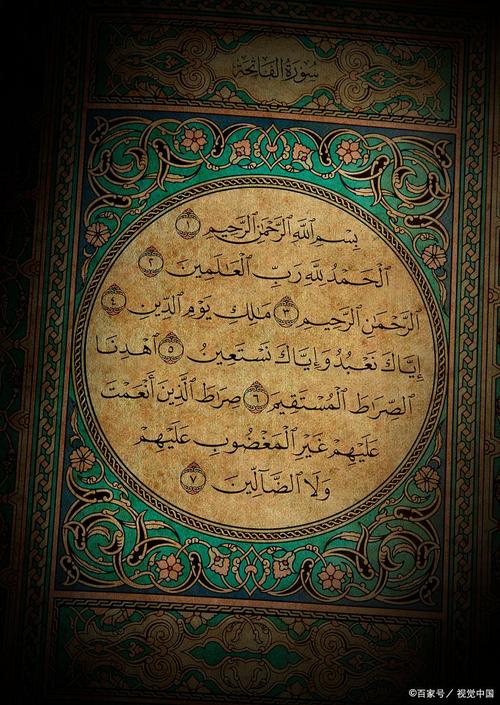 سُورَةُ الفَاتِحَةِ
بِسْمِ ٱللَّهِ ٱلرَّحْمَٰنِ ٱلرَّحِيمِ ١
ٱلْحَمْدُ لِلَّهِ رَبِّ ٱلْعَٰلَمِينَ ٢
ٱلرَّحْمَٰنِ ٱلرَّحِيمِ ٣ مَٰلِكِ يَوْمِ ٱلدِّينِ ٤
إِيَّاكَ نَعْبُدُ وَإِيَّاكَ نَسْتَعِينُ ٥ ٱهْدِنَا
ٱلصِّرَٰطَ ٱلْمُسْتَقِيمَ ٦ صِرَٰطَ ٱلَّذِينَ أَنْعَمْتَ
عَلَيْهِمْ غَيْرِ ٱلْمَغْضُوبِ عَلَيْهِمْ
وَلَا ٱلضَّآلِّينَ ٧
©百家号／视觉中国